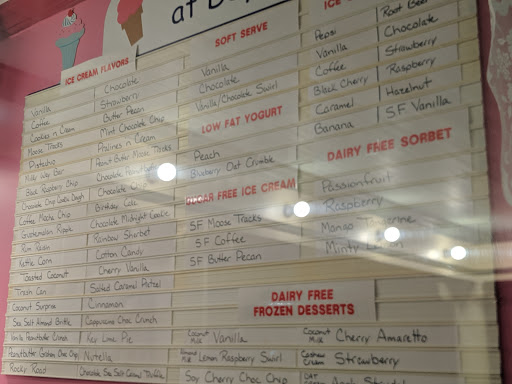 at
ICE CREAM FLAVORS
Vanilla
Coffee
Cookies n Cream
Moose Tracks
Pistachio
Milky Way Bar
Black Raspberry Chip
Chocolate Chip Cookie Dough
Coffee Mocha Chip
Guatemalan Ripple
Rum Raisin
Kettle Corn
Toasted Coconut
Trash Can
Coconut Surprise
Sea Salt Almond Brittle
Vanilla Peanutbutter Crunch
Peanutbutter Graham Choc Chip
Rocky Road
Chocolate
Strawberry
Butter Pecan
Mint Chocolate Chip
Pralines n Cream
Peanut Butter Moose Tracks
Chocolate Peanutbutter
Chocolate Chip
Birthday Cake
Chocolate Midnight Cookie
Rainbow Sherbet
Cotton Candy
Cherry Vanilla
Salted Caramel Pretzel
Cinnamon
Cappuccino Choc Crunch
Key Lime Pie
Nutella
Chocolate Sea Salt Caramel Truffle
SOFT SERVE
Vanilla
Chocolate
Vanilla/Chocolate Swirl
LOW FAT YOGURT
Peach
Blueberry Oat Crumble
SUGAR FREE ICE CREAM
SF Moose Tracks
SF Coffee
SF Butter Pecan
ICE
Pepsi
Vanilla
Coffee
Black Cherry
Caramel
Banana
Root Beer
Chocolate
Strawberry
Raspberry
Hazelnut
SF Vanilla
DAIRY FREE SORBET
Passionfruit
Raspberry
Mango Tangerine
Minty
DAIRY FREE
FROZEN DESSERTS
Coconut Milk Vanilla
Almond Milk Lemon Raspberry Swirl
Soy Cherry Choc Chip
Coconut Milk Cherry Amaretto
Cashew Strawberry
OAT